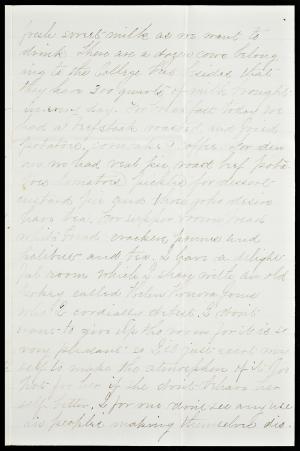 fresh sweet milk as we want to
drink. There are a dozen cows belong
ing to the College but besides that
they have 200 quarts of milk brought
in every day. For breakfast today we
had a beefsteak roasted and fried
potatoes, corn cake & coffee. for din
ner we had veal pie, roast beef pota
toes tomatoes pickles for dessert
custard pie and those who desire
have tea. For supper brown bread
white bread crackers, prunes and
and tea. I have a delight
ful room which I share with an old
called Helen Jones
who I cordially detest. I don't
want to give up the room for it is so
very pleasant so I'll just exert my
self to make the atmosphere of it
hot for her if she don't behave her
self better. I for one don't see any use
in people making themselves dis